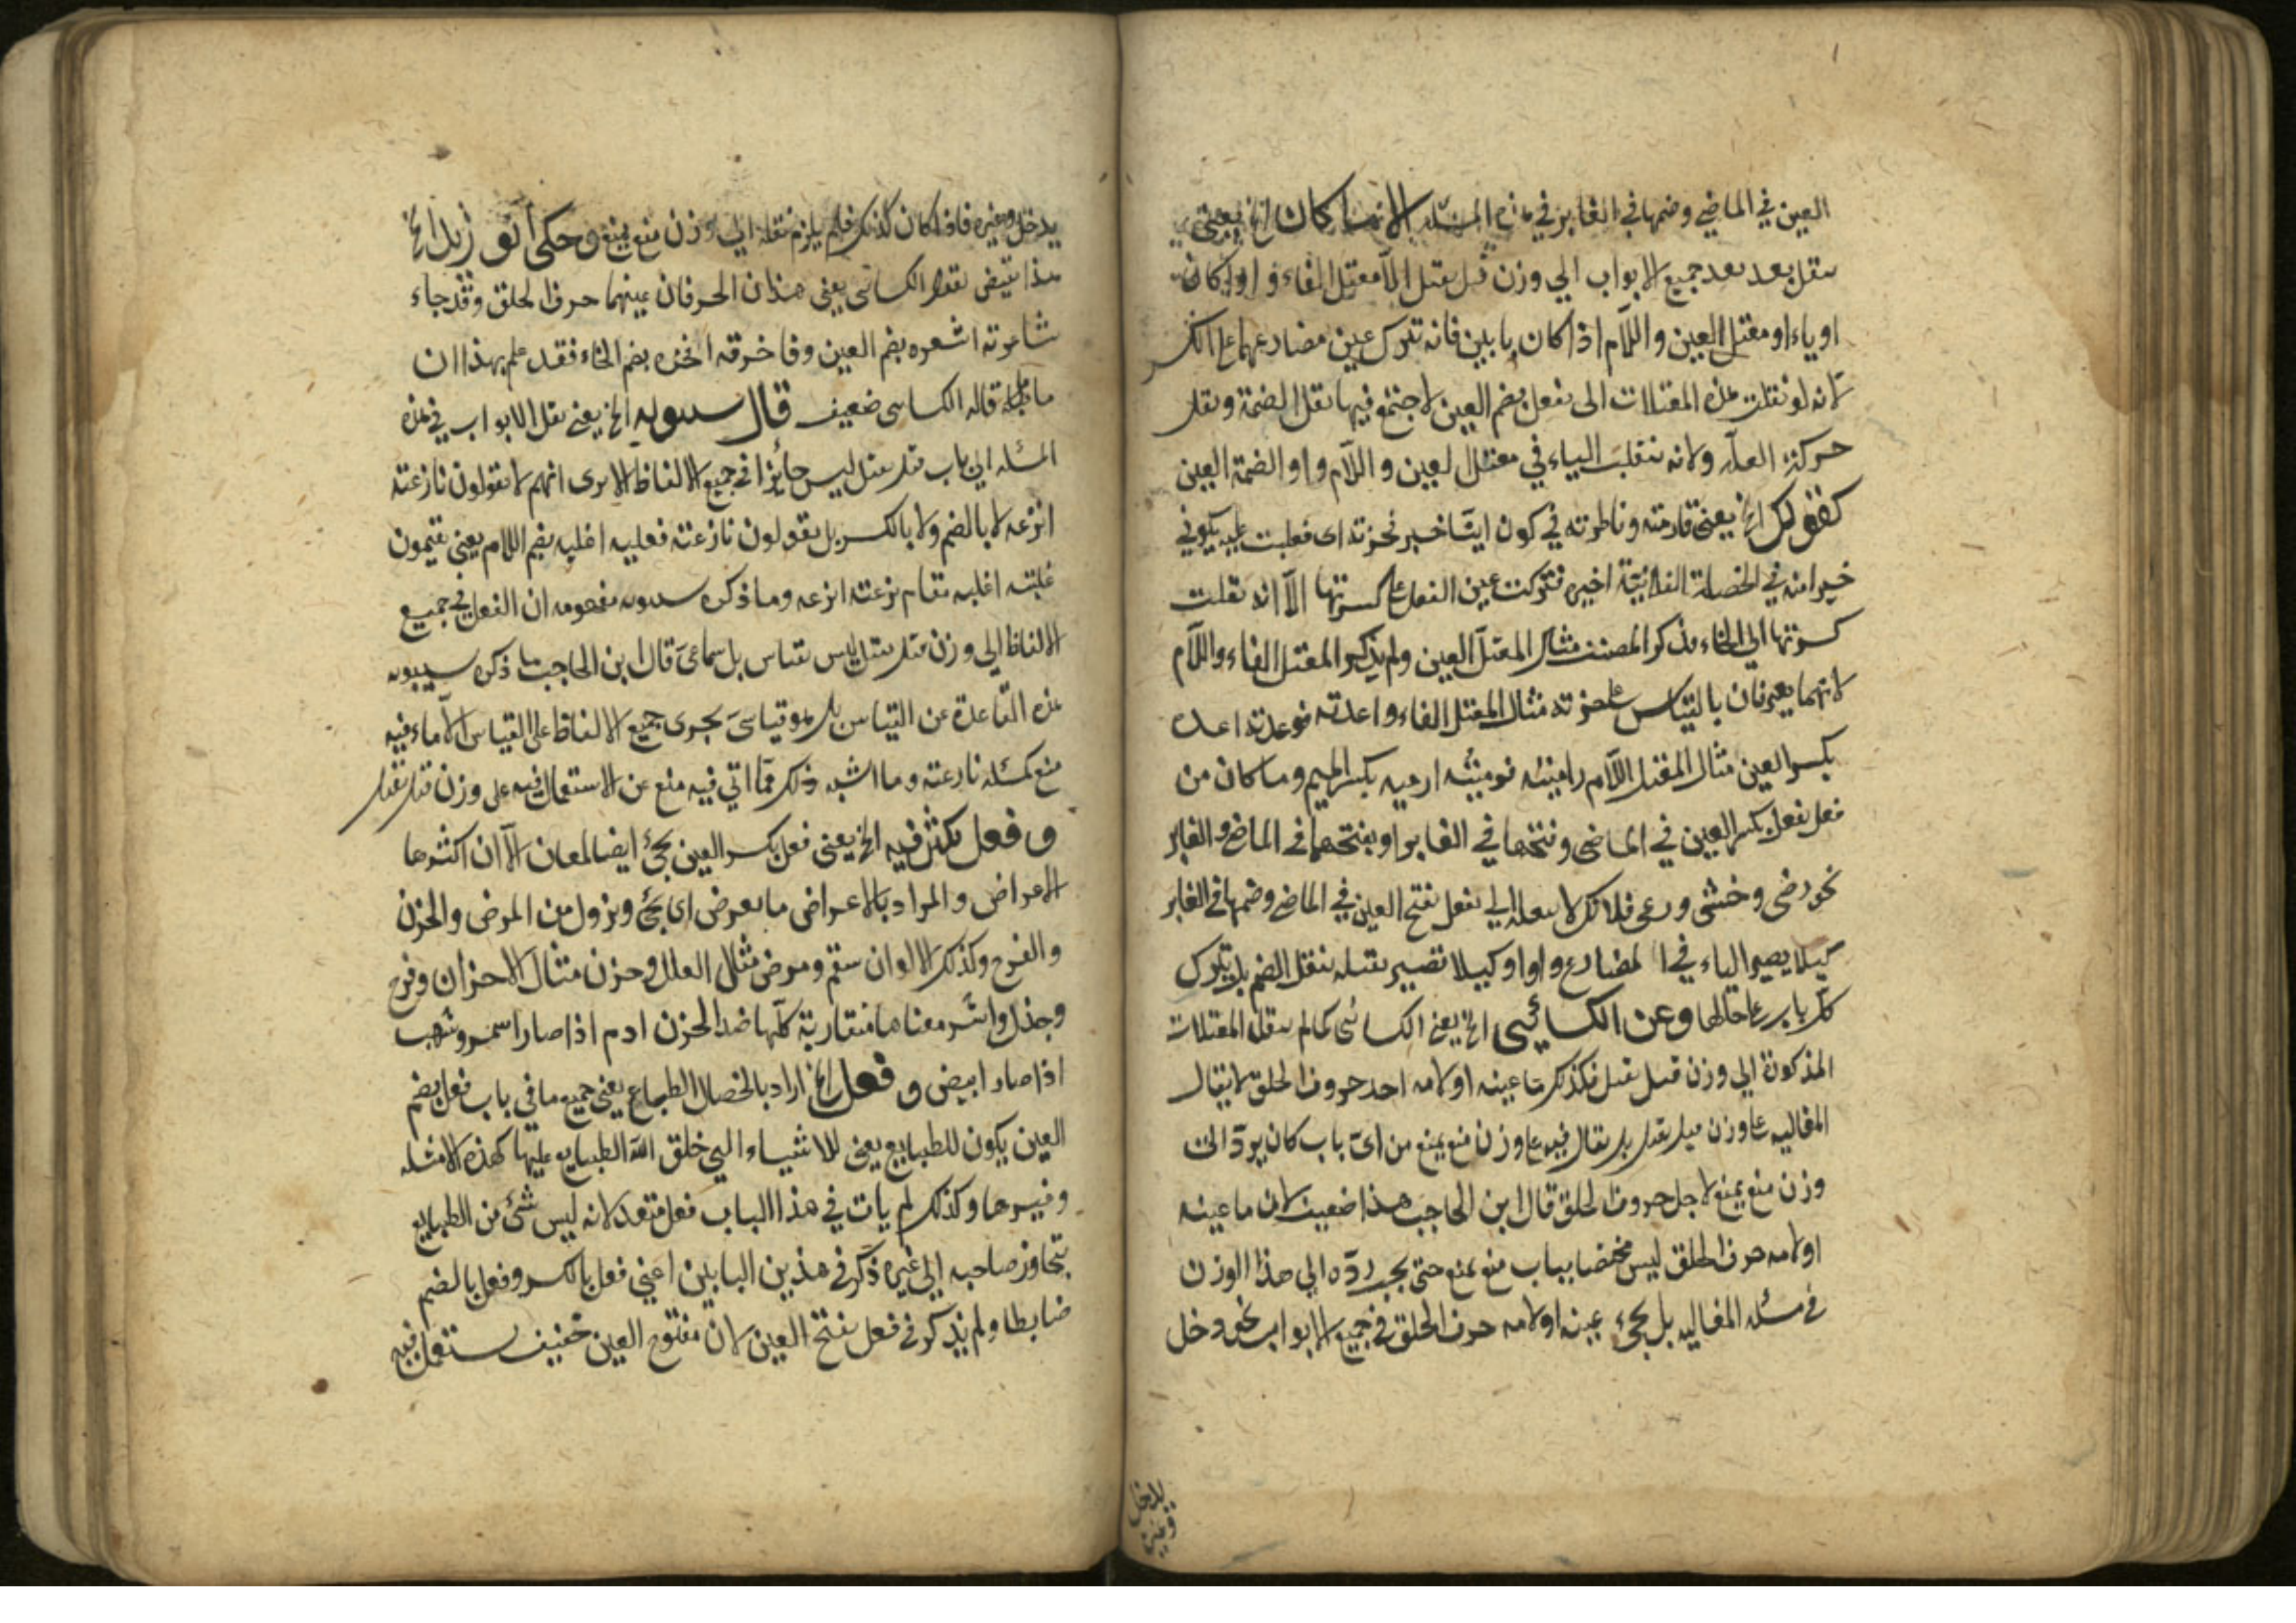 العين في الماضي وضمها في الغابر في هذه المسئلة الا ما كان الخ يعني
ينقل بعد بعد جميع الابواب الي وزن قبل يقبل الا معتل الفاء واوا كان
او ياء او معتل العين واللام اذا كان يا يين فانه تترك عين مضارعهما علي الكسر
لانه لو نقلت هذه المعتلات الى يفعل بضم العين لاجتمع فيها ثقل الضمة وثقل
حركة العلة ولانه تنقلب الياء في معتل العين واللام واوا لضمة العين
كقولك الخ يعني قارمته وناظرته في كون ايّنا خير نحرته اى فعلبت عليه بكوني
خيرا منه في الخصلة الفلانيّة اخيره فتركت عين الفعل علي كسرتها الا انه نقلت
كسرتها الي الخاء فذكر المصنف مثال المعتل العين ولم يذكر المعتل الفاء واللام
لانهما يعرفان بالقياس علي خرته مثال المعتل الفاء واعدته فوعدته اعده
بكسر العين مثال المعتل اللام راميته فرميته ارميه بكسر الميم وما كان من
فعل يفعل بكسر العين في الماضي وفتحها في الغابر او بفتحهما في الماضي والغابر
نحو رضي وخشي ورعى فلا تكن لا ينقله الي يفعل بفتح العين في الماضي وضمها في الغابر
كيلا يصير الياء في المضارع واوا وكيلا تصير ثقيله بنقل الضم بل يترك
كل باب علي حالها وعن الكسائي الخ يعني الكسائي كما لم ينقل المعتلات
المذكورة الي وزن قبل يقبل فكذلك ما عينه او لامه احد حروف الحلق لا يقال
المغالبه علي وزن قبل يقبل بل يقال فيه علي وزن منع يمنع من اىّ باب كان يردّ الى
وزن منع يمنع لاجل حروف الحلق قال ابن الحاجب هذا ضعيف لان ما عينه
او لامه حرف الحلق ليس مختصا بباب منع يمنع حتي يجب ردّه الي هذا الوزن
في مسئله المغالبه بل يجيء عينه او لامه حرف الحلق في جميع الابواب نحو دخل
يدخل وغيره
يدخل وغيره فاذا كان كذلك فلم يلزم نقله الي وزن منع يمنع وحكى ابو زيد الخ
هذا نقيض لقول الكسائي يعني هذان الحرفان عينهما حرف الحلق وقد جاء
شاعرته اشعره بضم العين وفاخرته افخره بضم الخاء فقد علم بهذا ان
ما قاله الكسائي ضعيف قال سيبويه الخ يعني نقل الابواب في هذه
المسئله الي باب قتل يقتل ليس جائزا في جميع الالفاظ الا يرى انهم لا يقولون نازعته
انزعه لا بالضم ولا بالكسر بل يقولون نازعته فغلبته اغلبه بضم اللام يعني يقيمون
غلبته اغلبه مقام نزعته انزعه وما ذكره سيبويه مفهومه ان الفعل في جميع
الالفاظ الي وزن قتل يقتل ليس بقياس بل سماعىّ قال ابن الحاجب ما ذكره سيبويه
هذه القاعدة عن القياس بل هو قياسىّ يجرى جميع الالفاظ علي القياس الا ما فيه
منع كمسئله نازعته وما اشبه ذلك مما اتي فيه منع عن الاستعمال فيه على وزن قتل يقتل
وفعل تكثر فيه الخ يعني فعل بكسر العين يجيء ايضا لمعان الا ان اكثرها
الاعراض والمراد بالاعراض ما يعرض اى يجيء ويزول من المرض والحزن
والفرح وكذلك الالوان سقم ومرض مثال العلل وحزن مثال الاحزان وفرح
وجذل واشر معناها متقاربة كلّها ضد الحزن ادم اذا صار اسمر وشهب
اذا صار ابيض وفعل الخ اراد بالخصال الطباع يعني جميع ما في باب فعل بضم
العين يكون للطبايع يعني للاشياء التي خلق الله الطبايع عليها كهذه الامثله
وغيرها وكذلك لم يات في هذا الباب فعل متعد لانه ليس شئ من الطبايع
يتجاوز صاحبه الي غيره ذكر في هذين البابين اعني فعل بالكسر وفعل بالضم
ضابطا ولم يذكر في فعل بفتح العين لان مفتوح العين خفيف يستعمل فيه